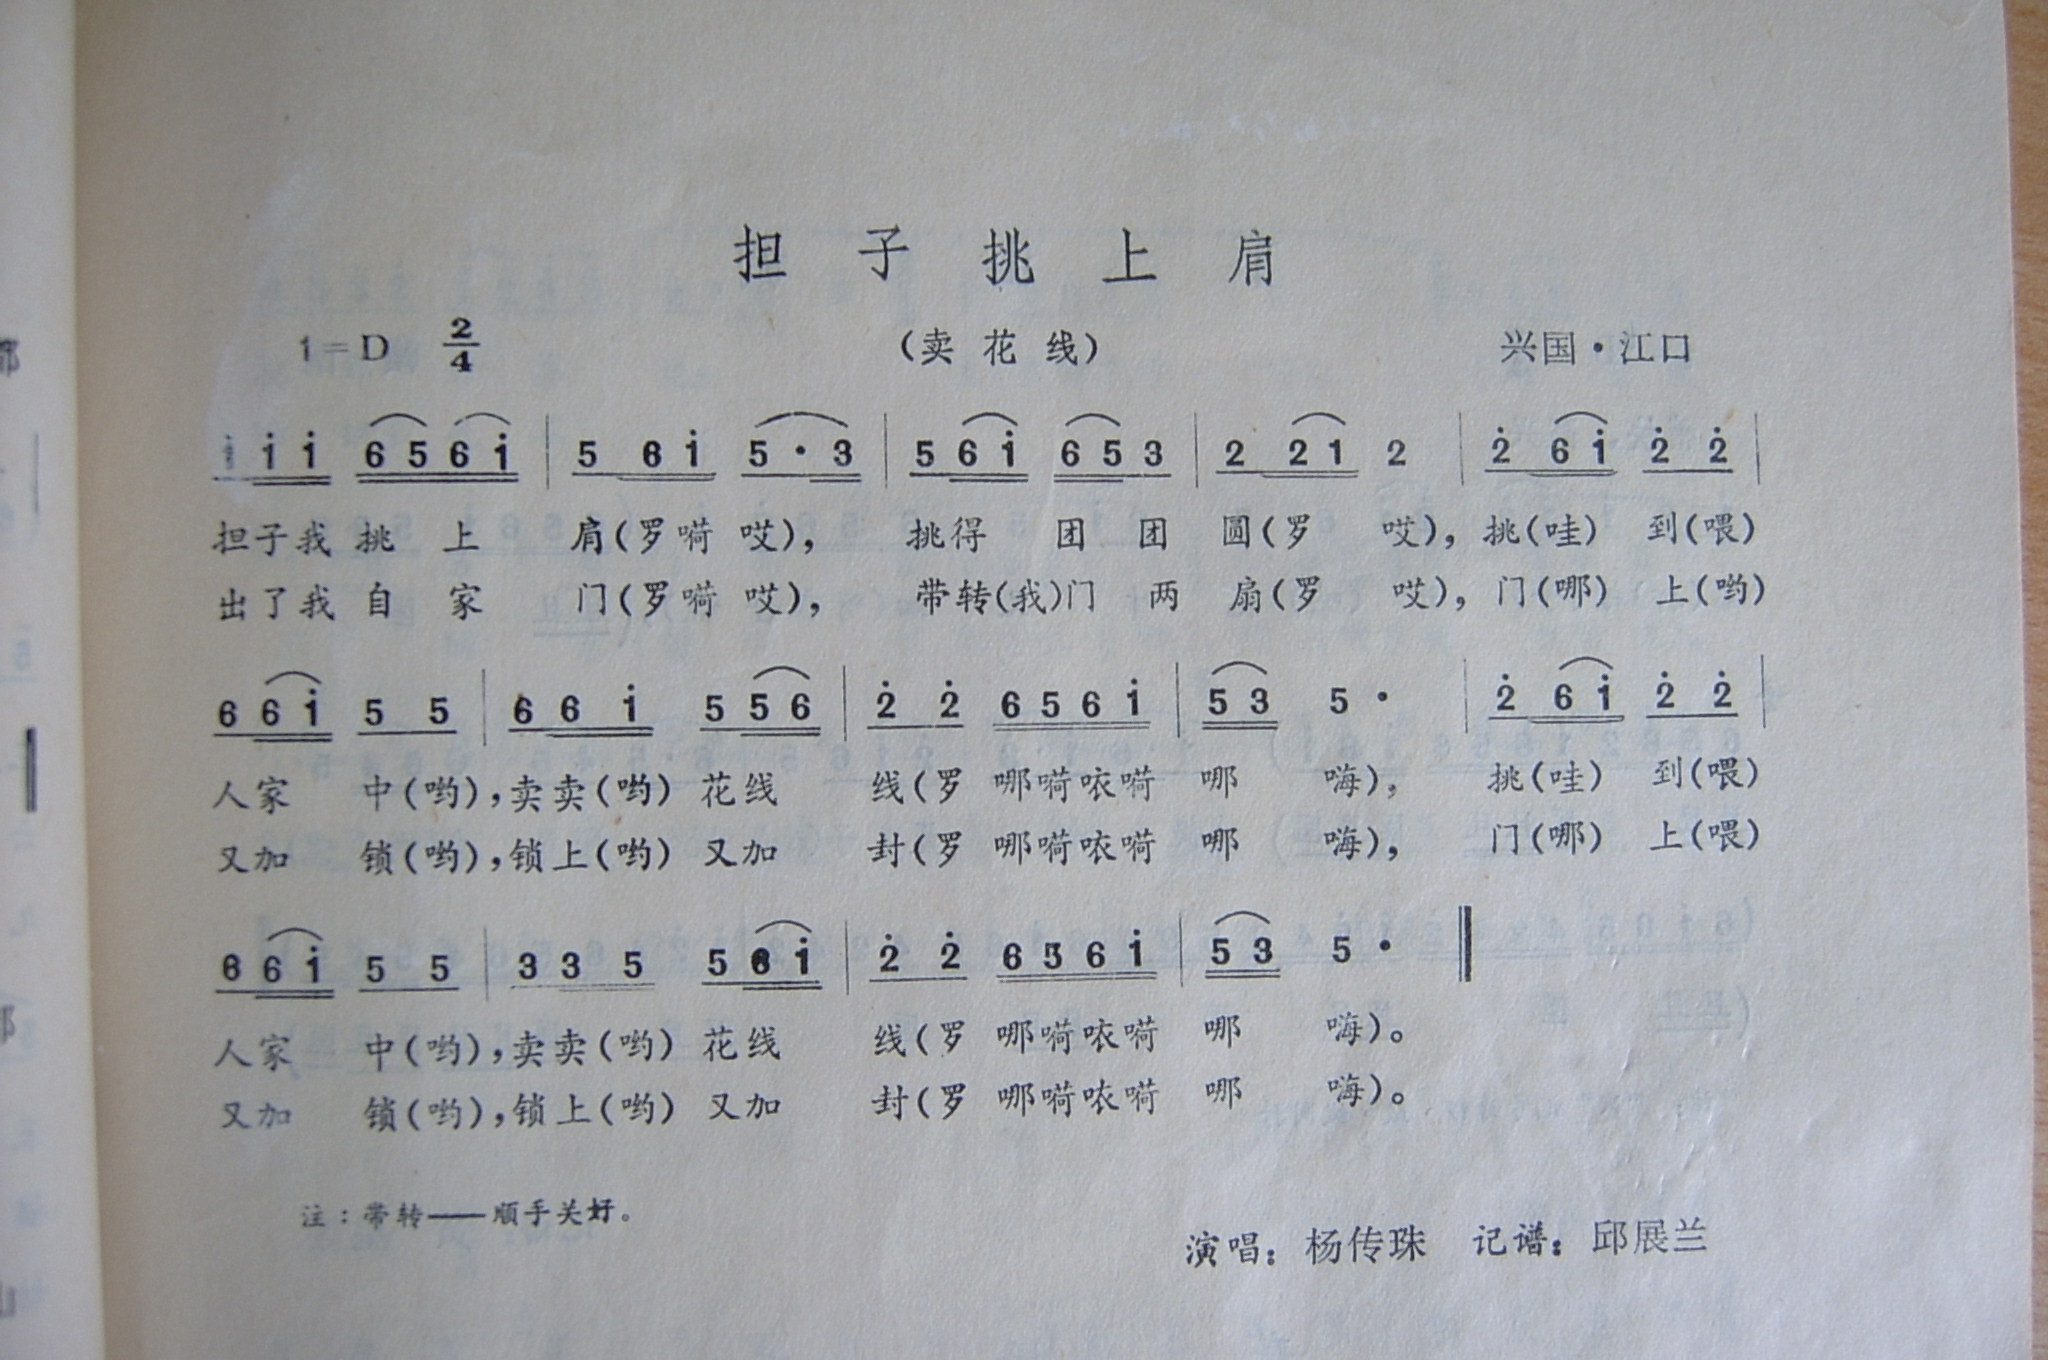 担子挑上肩
1=D 2/4 (卖花线) 兴国·江口
i i i 6 5 6 i | 5 6 i 5 · 3 | 5 6 i 6 5 3 | 2 2 1 2 | 2̇ 6 i 2̇ 2̇ |
担子我 挑 上 肩(罗嗬 哎), 挑得 团 团 圆(罗 哎), 挑(哇) 到(喂)
出了我 自 家 门(罗嗬 哎), 带转(我)门 两 扇(罗 哎), 门(哪) 上(哟)
6 6 i 5 5 | 6 6 i 5 5 6 | 2̇ 2̇ 6 5 6 i | 5 3 5 · | 2̇ 6 i 2̇ 2̇ |
人家 中(哟),卖卖(哟) 花线 线(罗 哪嗬咴嗬 哪 嗨), 挑(哇) 到(喂)
又加 锁(哟),锁上(哟) 又加 封(罗 哪嗬咴嗬 哪 嗨), 门(哪) 上(喂)
6 6 i 5 5 | 3 3 5 5 6 i | 2̇ 2̇ 6 5 6 i | 5 3 5 ·
人家 中(哟),卖卖(哟) 花线 线(罗 哪嗬咴嗬 哪 嗨)。
又加 锁(哟),锁上(哟) 又加 封(罗 哪嗬咴嗬 哪 嗨)。
注:带转——顺手关好。
演唱:杨传珠 记谱:邱展兰